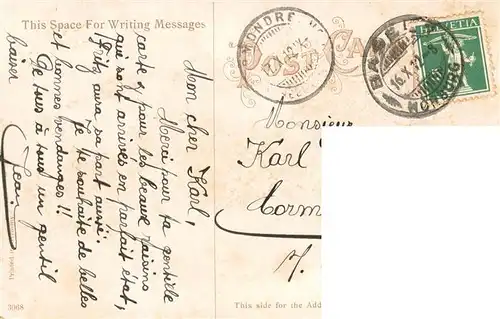 This Space For Writing Messages
Mon cher Karl!
Merci pour ta gentille
carte, et pour les beaux raisins
qui sont arrivés en parfait état,
Fritz aura sa part aussi.
Je te souhaite de belles
et bonnes vendanges!!
De tous à tous un gentil
baiser
Jean
3968
POST CARD
BASEL
16.X.
HELVETIA
Monsieur
Karl
Corm
This side for the Add